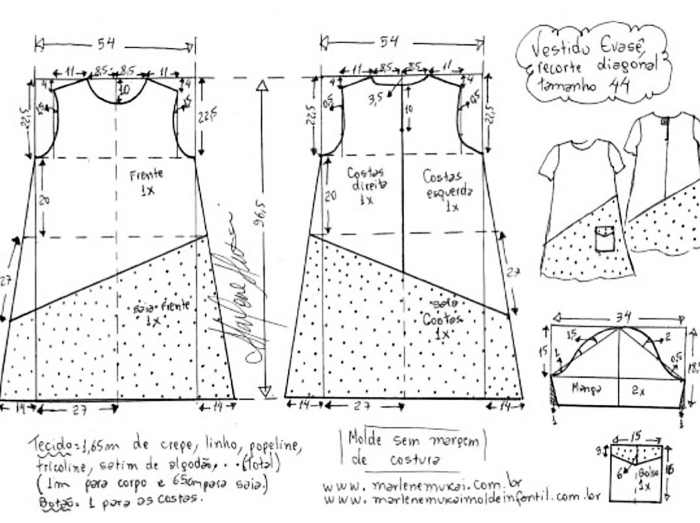 54
54
Vestido Evasê,
recorte diagonal
tamanho 44
11 8,5 8,5 11
11 8,5 8,5 11
4 10 4
4 3,5 10 4
22,5 22,5
22,5 22,5
0,5
0,5
Frente
1x
Costas
direita
1x
Costas
esquerda
1x
20
20
96,5
27
27
saia frente
1x
saia
Costas
1x
Marlene Mukai
34
15 1,5 2
1 0,5
Manga 2x
1 1
14 27 14
14 27 14
15
3
6 Bolso
1x
Tecido=1,65m de crepe, linho, popeline,
tricoline, satim de algodão, ... (total)
(1m para corpo e 65cm para saia.)
Botão: 1 para as costas.
Molde sem margem
de costura
www.marlenemukai.com.br
www.marlenemukaimoldeinfantil.com.br